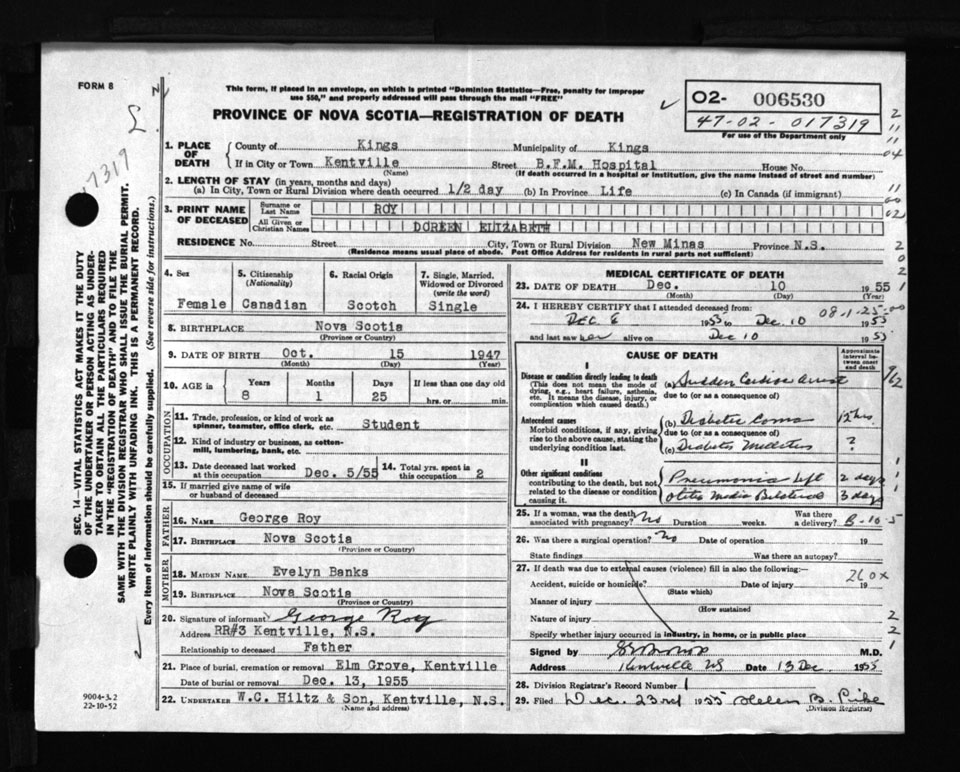 FORM 8
This form, if placed in an envelope, on which is printed "Dominion Statistics—Free, penalty for improper
use $50," and properly addressed will pass through the mail "FREE"
PROVINCE OF NOVA SCOTIA—REGISTRATION OF DEATH
02- 006530
47-02-017319
For use of the Department only
17319
1. PLACE OF DEATH
County of Kings Municipality of Kings
If in City or Town Kentville Street B.F.M. Hospital House No.
(Name) (If death occurred in a hospital or institution, give the name instead of street and number)
2. LENGTH OF STAY (in years, months and days)
(a) In City, Town or Rural Division where death occurred 1/2 day (b) In Province Life (c) In Canada (if immigrant)
3. PRINT NAME OF DECEASED
Surname or Last Name ROY
All Given or Christian Names DOREEN ELIZABETH
RESIDENCE No. Street City, Town or Rural Division New Minas Province N.S.
(Residence means usual place of abode. Post Office Address for residents in rural parts not sufficient)
SEC. 14—VITAL STATISTICS ACT MAKES IT THE DUTY
OF THE UNDERTAKER OR PERSON ACTING AS UNDER-
TAKER TO OBTAIN ALL THE PARTICULARS REQUIRED
IN THE "REGISTRATION OF DEATH" AND TO FILE THE
SAME WITH THE DIVISION REGISTRAR WHO SHALL ISSUE THE BURIAL PERMIT.
WRITE PLAINLY WITH UNFADING INK. THIS IS A PERMANENT RECORD.
Every item of information should be carefully supplied. (See reverse side for instructions.)
4. Sex
Female
5. Citizenship
(Nationality)
Canadian
6. Racial Origin
Scotch
7. Single, Married,
Widowed or Divorced
(write the word)
Single
8. BIRTHPLACE Nova Scotia
(Province or Country)
9. DATE OF BIRTH Oct. 15 1947
(Month) (Day) (Year)
10. AGE in Years Months Days If less than one day old
8 1 25 hrs. or min.
OCCUPATION
11. Trade, profession, or kind of work as
spinner, teamster, office clerk, etc. Student
12. Kind of industry or business, as cotton-
mill, lumbering, bank, etc.
13. Date deceased last worked
at this occupation Dec. 5/55
14. Total yrs. spent in
this occupation 2
15. If married give name of wife
or husband of deceased
FATHER
16. NAME George Roy
17. BIRTHPLACE Nova Scotia
(Province or Country)
MOTHER
18. MAIDEN NAME Evelyn Banks
19. BIRTHPLACE Nova Scotia
(Province or Country)
20. Signature of informant George Roy
Address RR#3 Kentville, N.S.
Relationship to deceased Father
21. Place of burial, cremation or removal Elm Grove, Kentville
Date of burial or removal Dec. 13, 1955
22. UNDERTAKER W.C. Hiltz & Son, Kentville, N.S.
(Name and address)
9004-3.2
22-10-52
MEDICAL CERTIFICATE OF DEATH
23. DATE OF DEATH Dec. 10 1955
(Month) (Day) (Year)
24. I HEREBY CERTIFY that I attended deceased from:
Dec 6 1953 to Dec. 10 1955
08-1-25-00
and last saw her alive on Dec 10 1955
CAUSE OF DEATH
Approximate interval between onset and death
I
Disease or condition directly leading to death
(This does not mean the mode of
dying, e.g., heart failure, asthenia,
etc. It means the disease, injury, or
complication which caused death.)
(a) Sudden Cardiac arrest
due to (or as a consequence of)
Antecedent causes
Morbid conditions, if any, giving
rise to the above cause, stating the
underlying condition last.
(b) Diabetic Coma 12 hrs
due to (or as a consequence of)
(c) Diabetes Mellitus ?
II
Other significant conditions
contributing to the death, but not
related to the disease or condition
causing it.
Pneumonia Left 2 days
Otitis Media Bilateral 3 days
25. If a woman, was the death
associated with pregnancy? No Duration weeks. Was there
a delivery? B-10-5
26. Was there a surgical operation? No Date of operation 19
State findings Was there an autopsy?
27. If death was due to external causes (violence) fill in also the following:—
260x
Accident, suicide or homicide? Date of injury 19
(State which)
Manner of injury
(How sustained
Nature of injury
Specify whether injury occurred in industry, in home, or in public place
Signed by M.D.
Address Kentville NS Date 13 Dec. 1955
28. Division Registrar's Record Number 1
29. Filed Dec. 23rd 1955 Helen B. Pike
(Division Registrar)